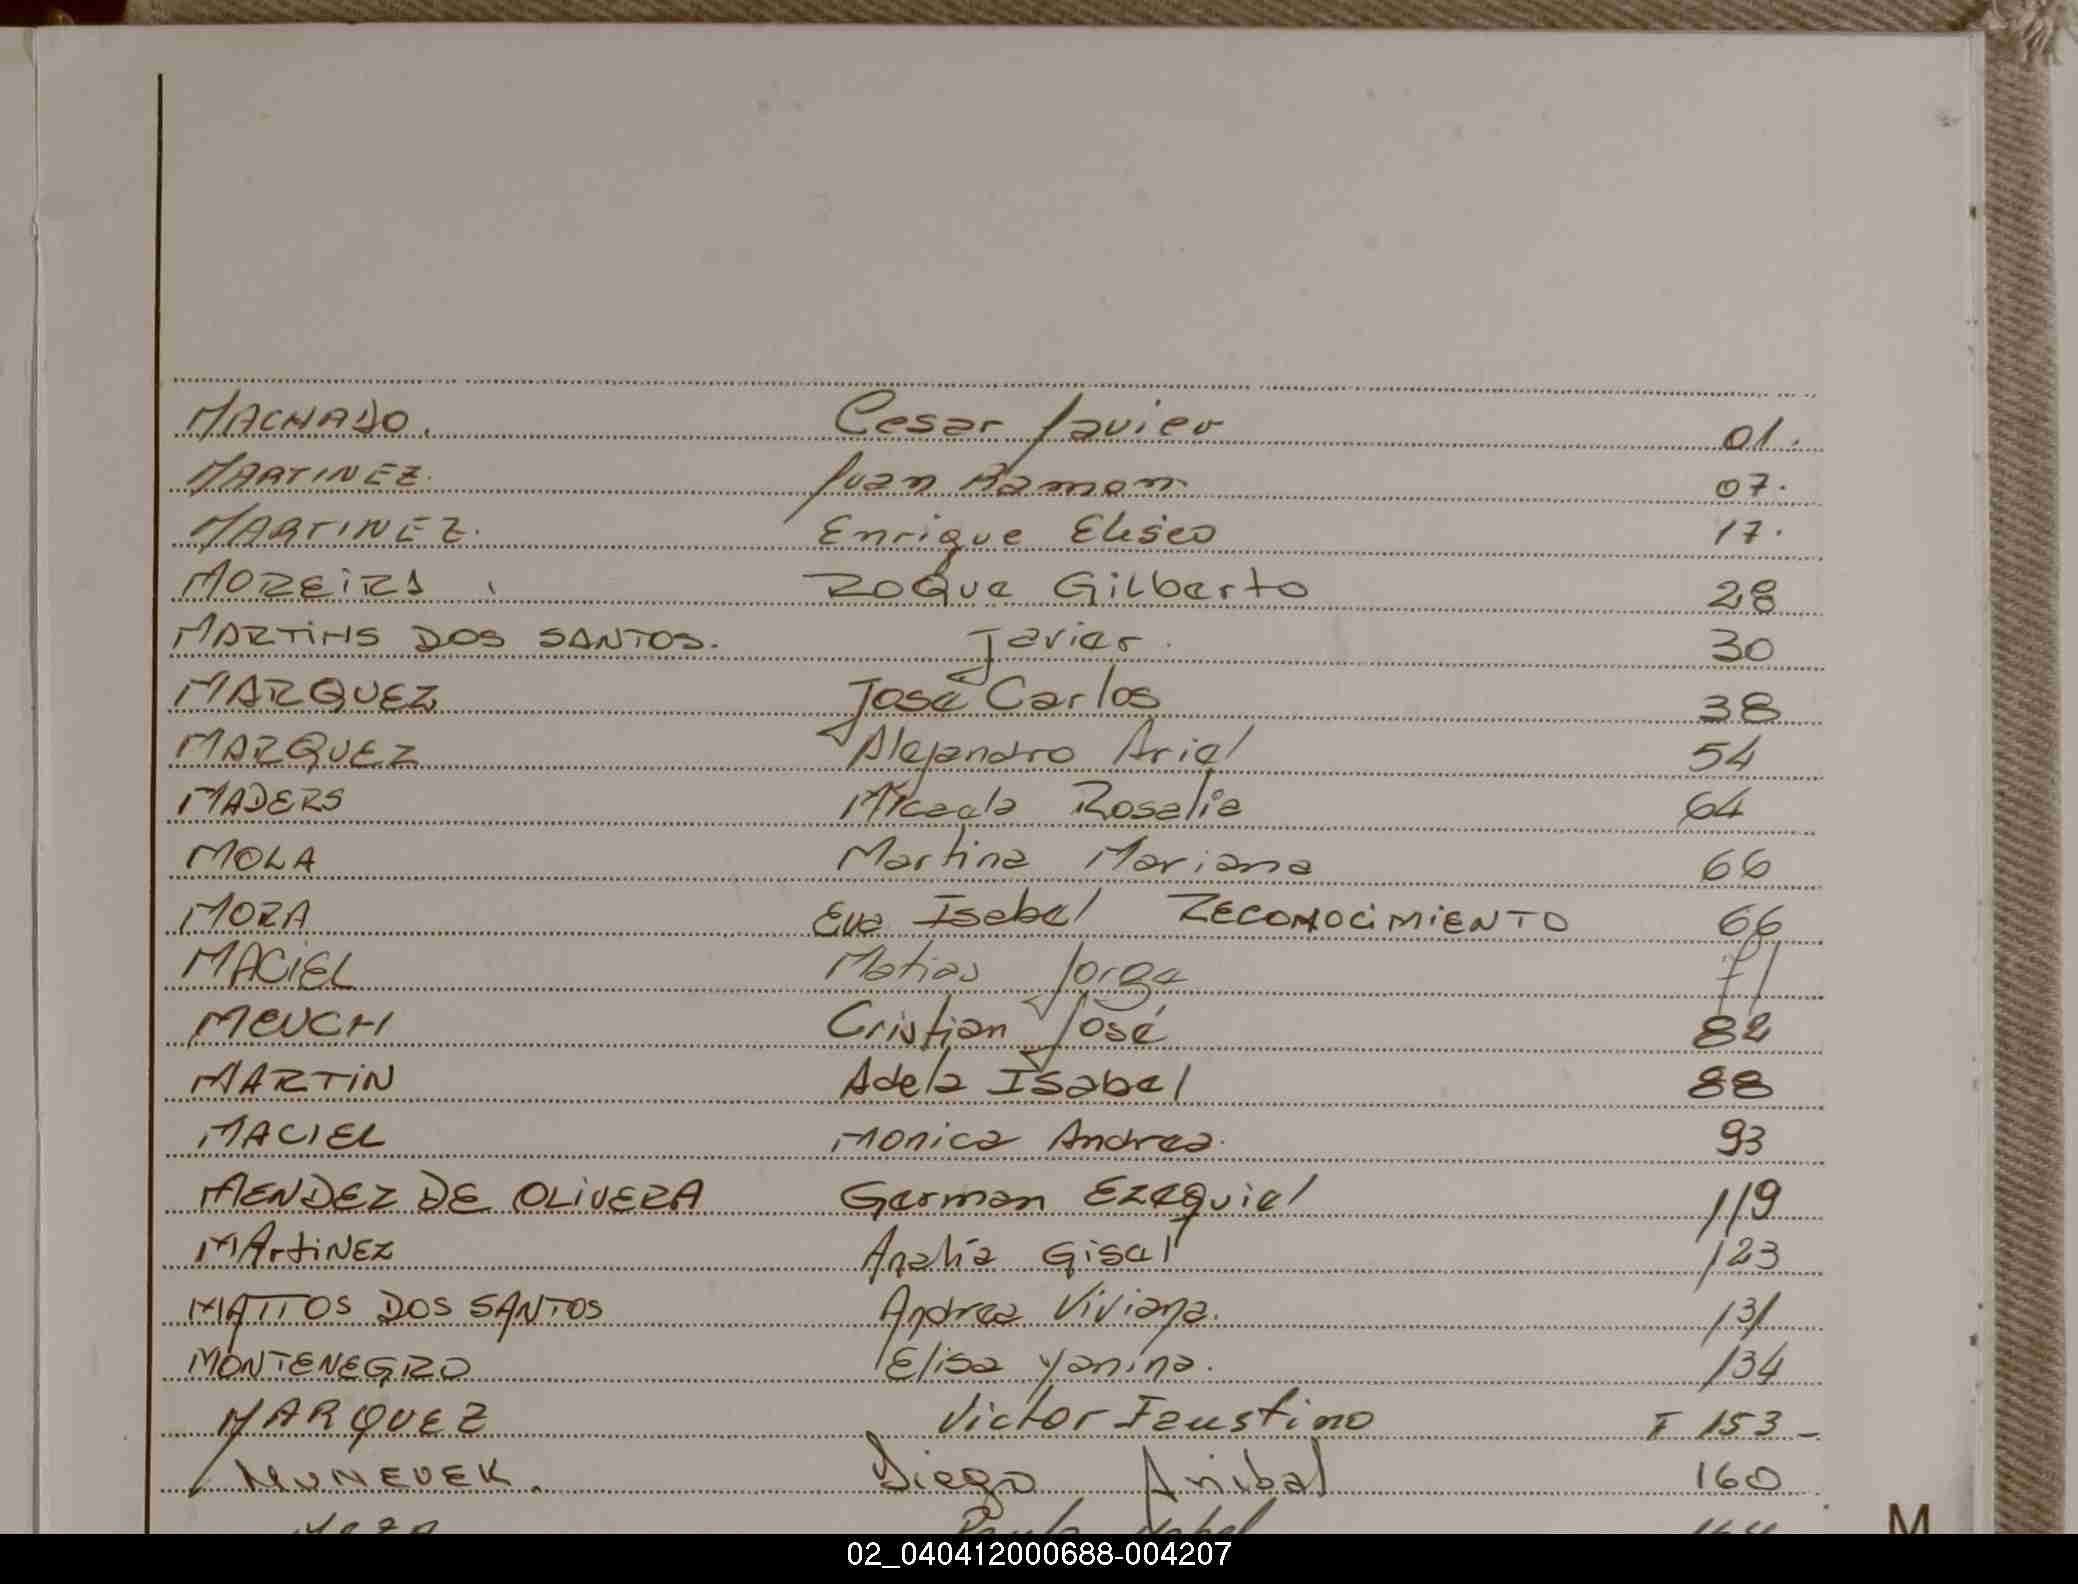 MACHADO. Cesar Javier 01.
MARTINEZ. Juan Ramon. 07.
MARTINEZ. Enrique Eliseo 17.
MOREIRA. Roque Gilberto 28
MARTINS DOS SANTOS. Javier. 30
MARQUEZ José Carlos 38
MARQUEZ Alejandro Ariel 54
MADERS Micaela Rosalia 64
MOLA Martina Mariana 66
MORA Eva Isabel RECONOCIMIENTO 66
MACIEL Matias Jorge
MEUCHI Cristian José 82
MARTIN Adela Isabel 88
MACIEL Monica Andrea. 93
MENDEZ DE OLIVERA German Ezequiel 119
MArtiNEZ Analia Gisel 123
MATTOS DOS SANTOS Andrea Viviana. 131
MONTENEGRO Elisa Yanina. 134
MARQUEZ Victor Faustino F 153 -
MUNEVEK. Diego Anibal 160
M
02_040412000688-004207